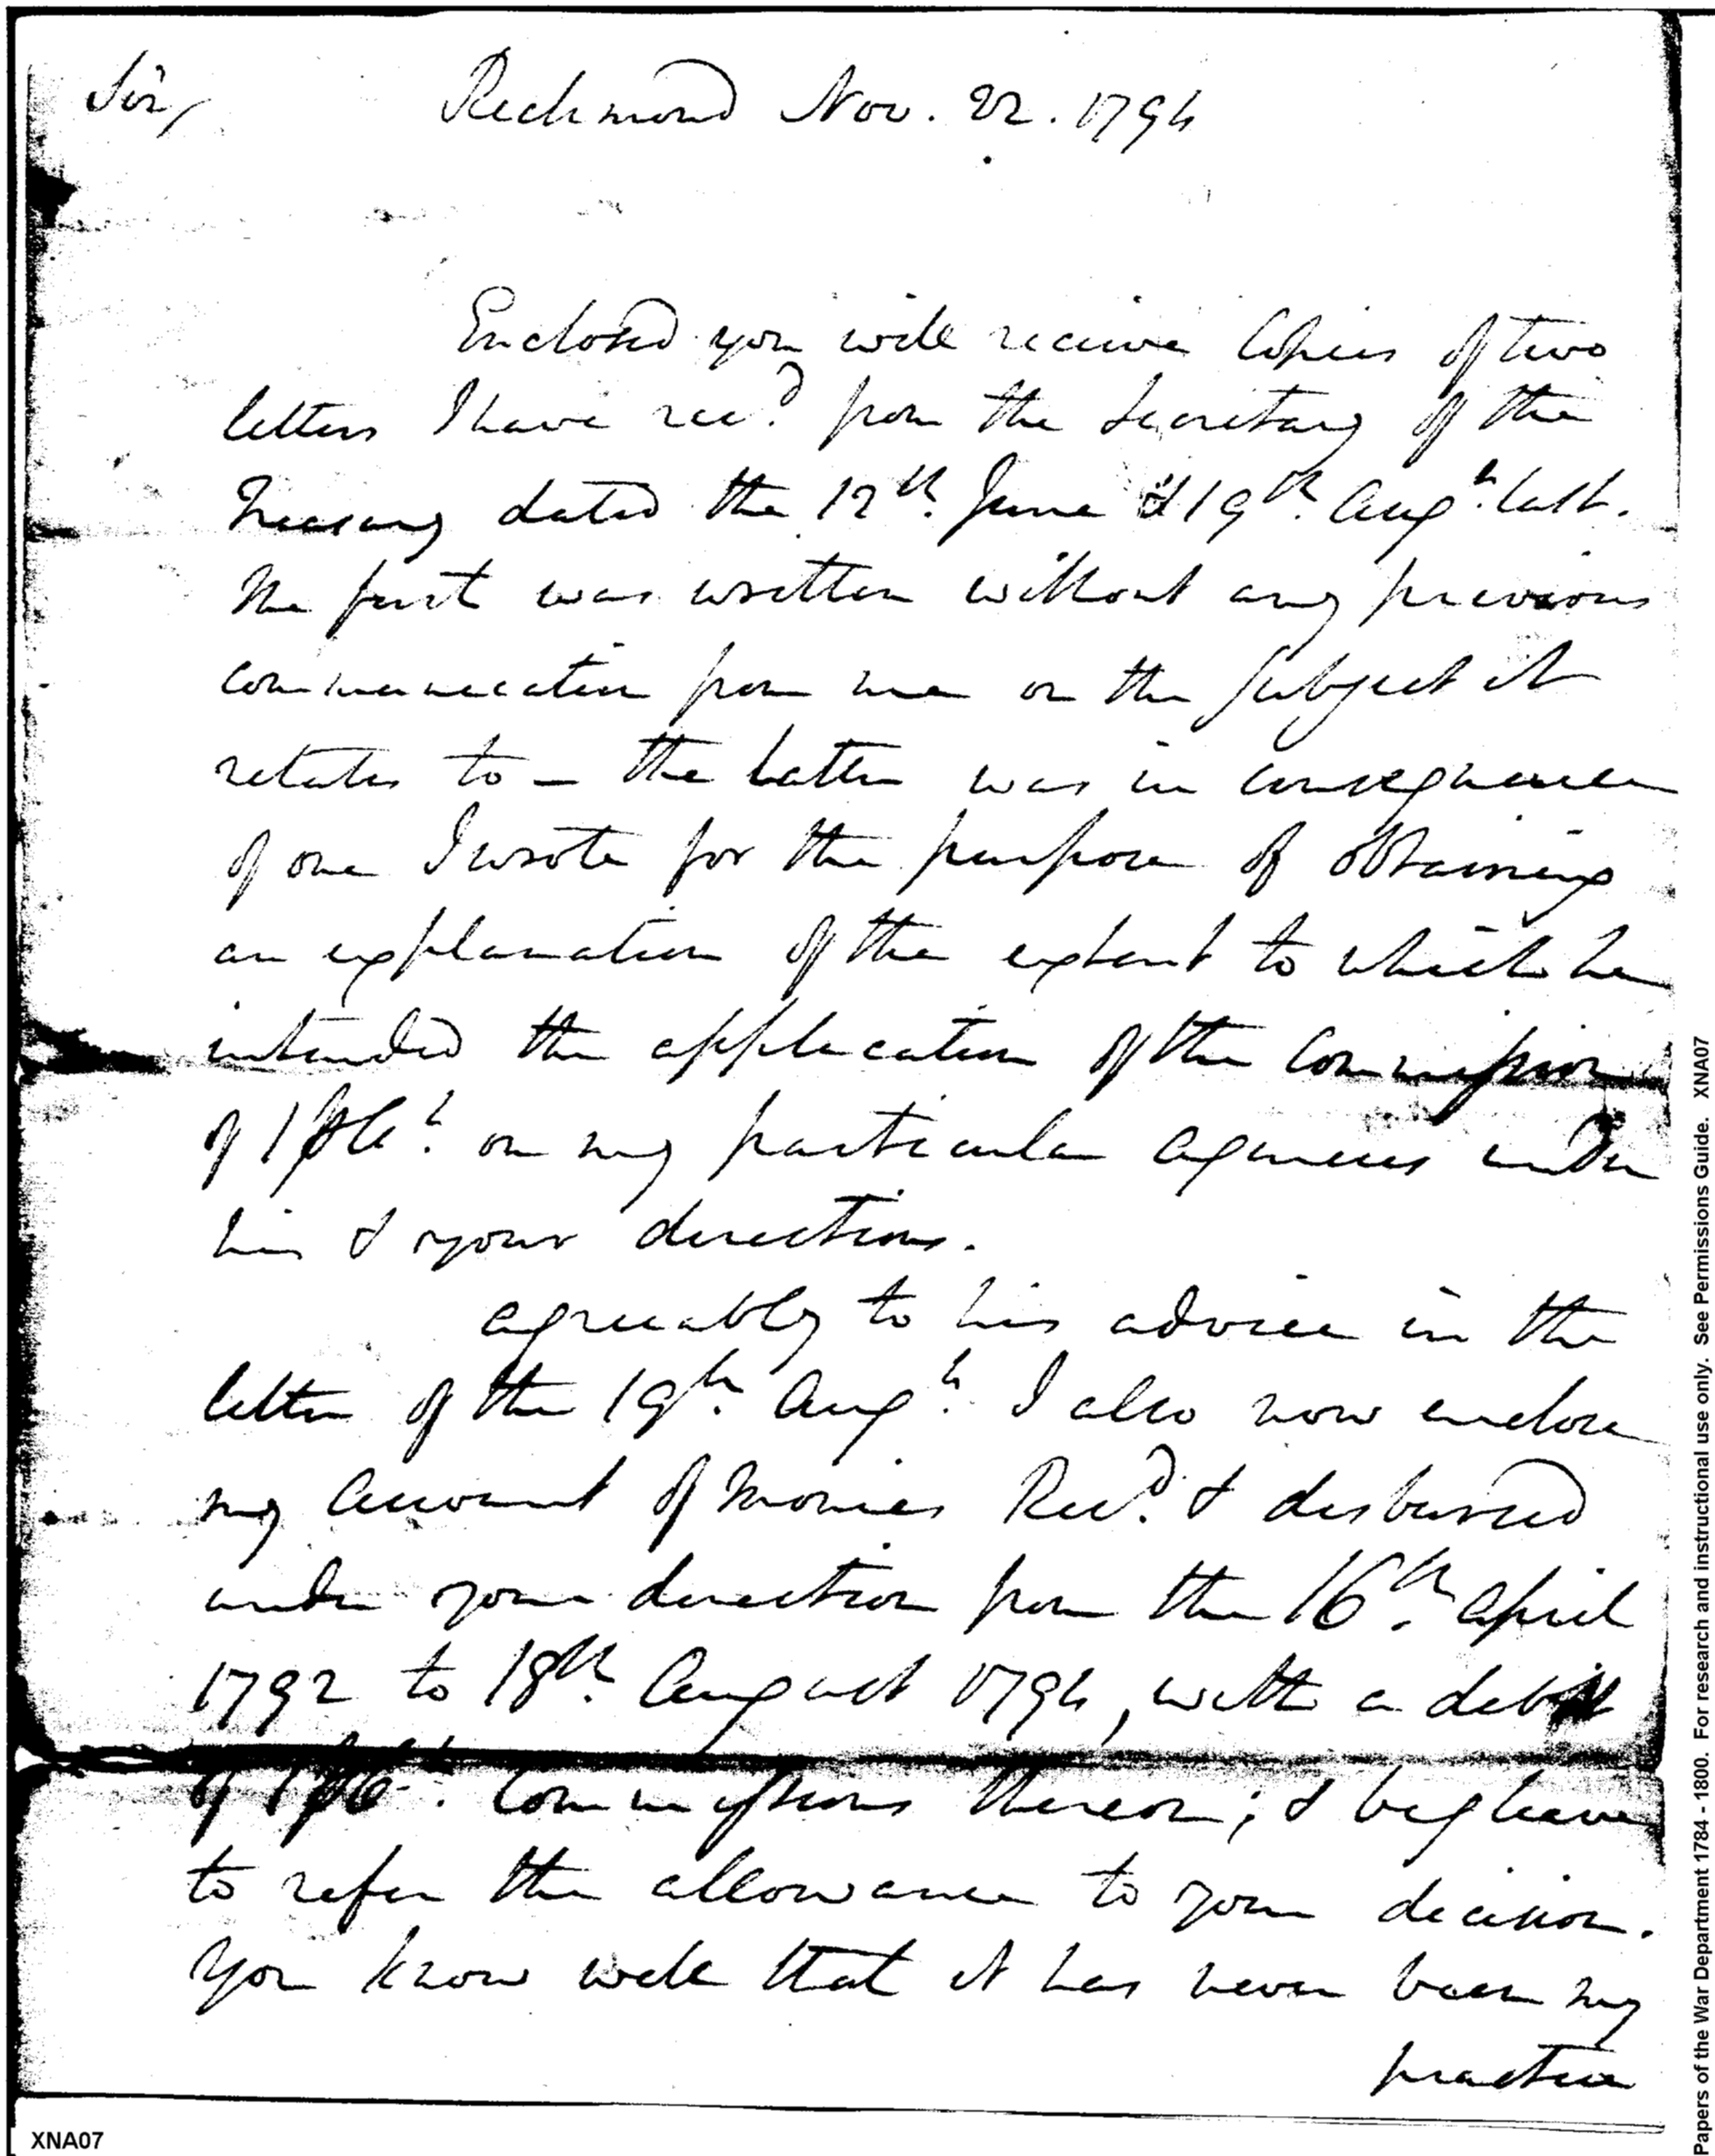 Sir, Richmond Nov. 22. 1794
Enclosed you will receive Copies of two
letters I have recd. from the Secretary of the
Treasury dated the 12th. June & 19th. Augt. last.
The first was written without any previous
communication from me on the subject it
relates to - the latter was in consequence
of one I wrote for the purpose of obtaining
an explanation of the extent to which he
intended the application of the Commission
of 1 ⅌Ct. on my particular agencies under
him & your directions.
agreeably to his advice in the
letter of the 19th. Augt. I also now enclose
my account of Monies Recd. & disbursed
under your direction from the 16th. April
1792 to 18th. August 1794, with a debit
of 1 ⅌Ct. Commissions thereon; & beg leave
to refer the allowance to your decision.
You know well that it has never been my
practice
XNA07
Papers of the War Department 1784 - 1800. For research and instructional use only. See Permissions Guide. XNA07